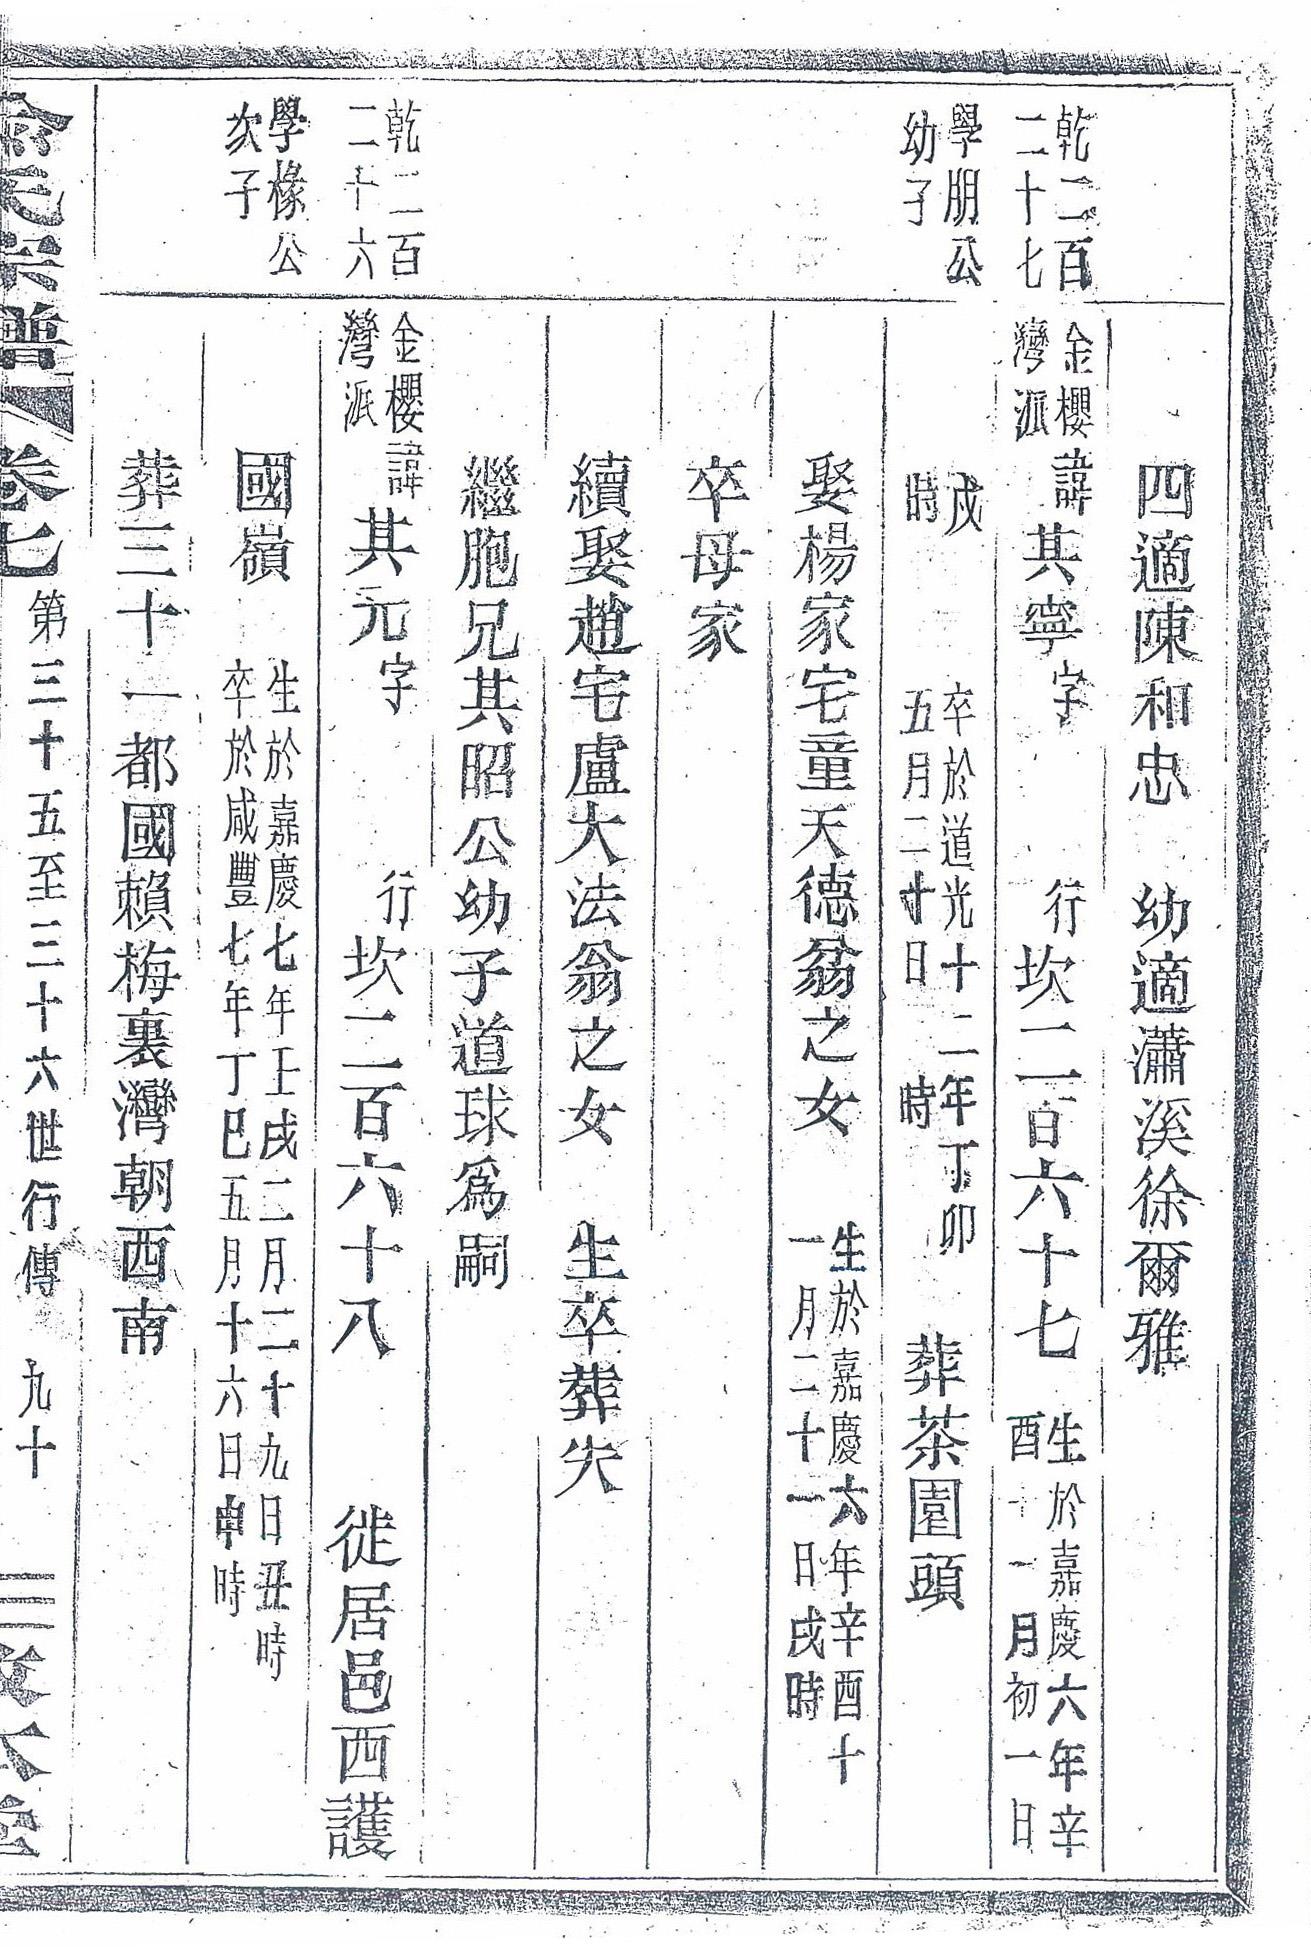 四適陳和忠　幼適瀟溪徐爾雅
乾二百
二十七
學朋公
幼子
金櫻
灣派
諱其寧字　行坎二百六十七
生於嘉慶六年辛
酉十一月初一日
戌
時
卒於道光十二年丁卯
五月二十日　時
葬茶園頭
娶楊家宅童天德翁之女
生於嘉慶六年辛酉十
一月二十一日戌時
卒母家
續娶趙宅盧大法翁之女　生卒葬失
繼胞兄其昭公幼子道球爲嗣
乾二百
二十六
學椽公
次子
金櫻
灣派
諱其元字　行坎二百六十八　徙居邑西護
國嶺
生於嘉慶七年壬戌二月二十九日丑時
卒於咸豐七年丁巳五月十六日申時
葬三十一都國賴梅裏灣朝西南
宗譜
卷七　第三十五至三十六世行傳　九十